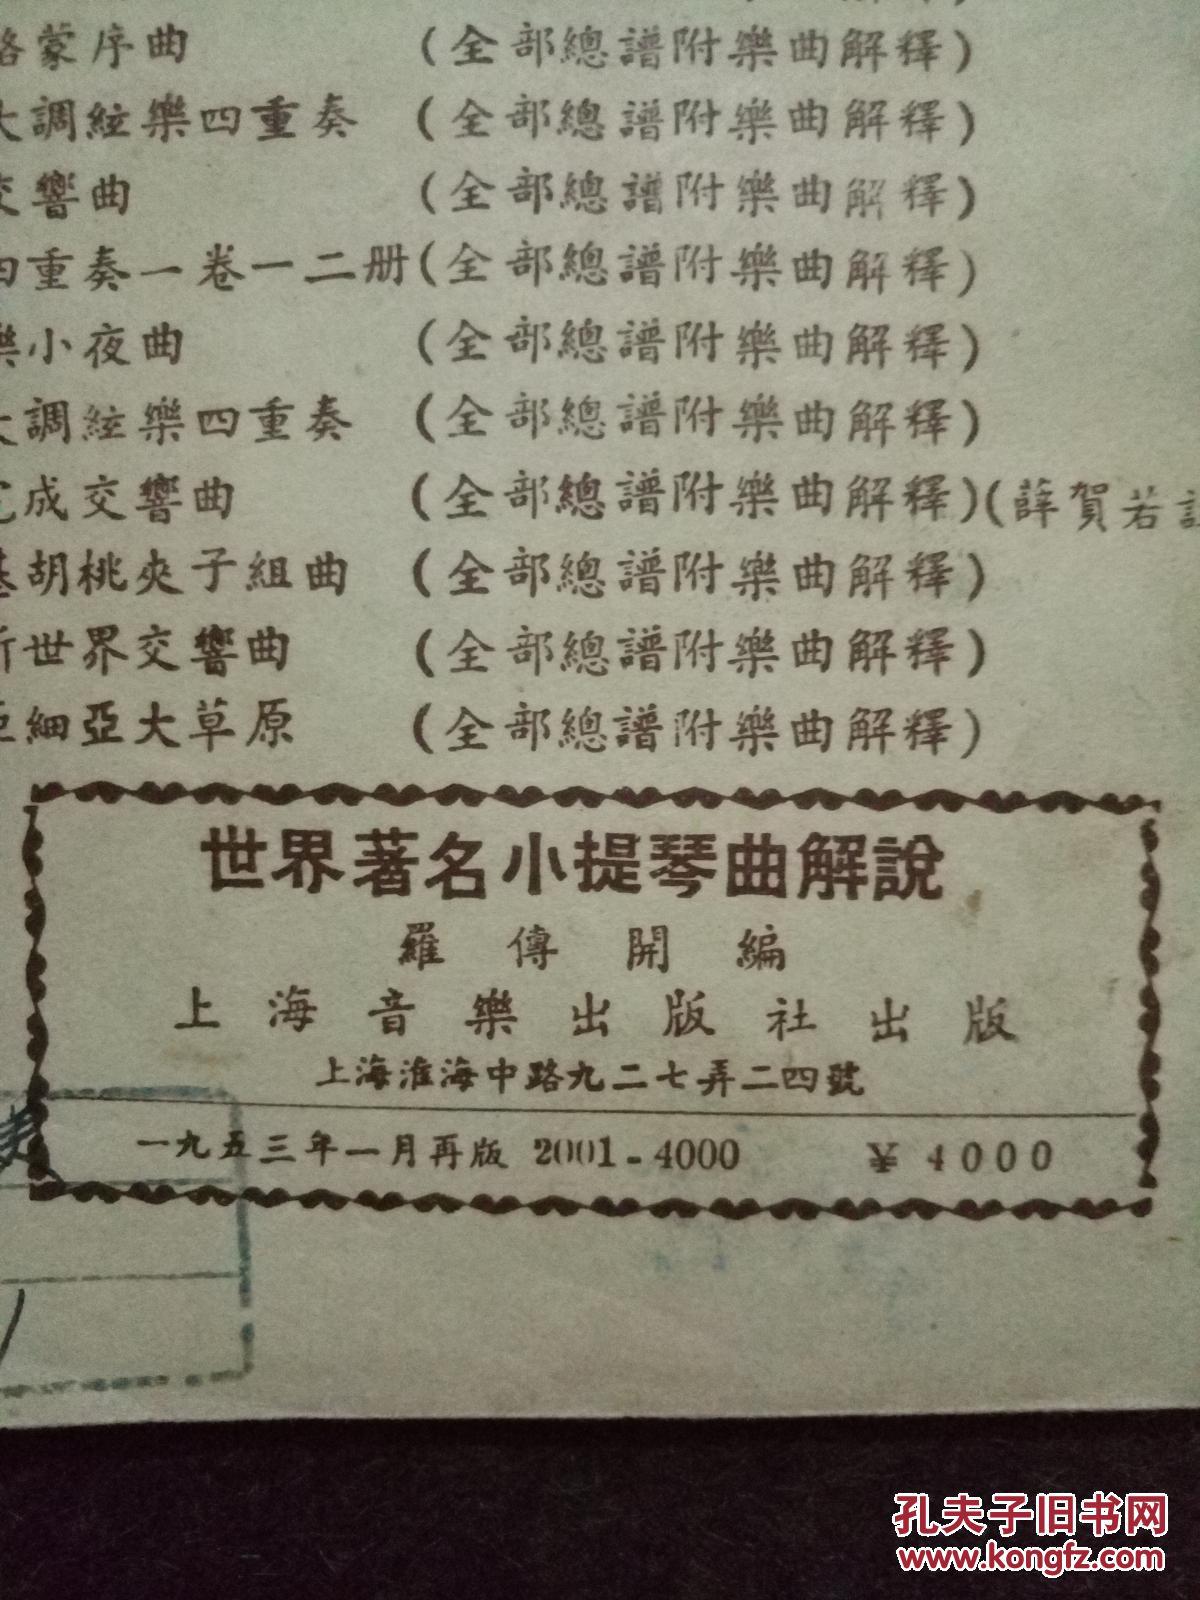 蒙序曲 (全部總譜附樂曲解釋)
大調絃樂四重奏 (全部總譜附樂曲解釋)
交響曲 (全部總譜附樂曲解釋)
四重奏一卷一二册(全部總譜附樂曲解釋)
樂小夜曲 (全部總譜附樂曲解釋)
大調絃樂四重奏 (全部總譜附樂曲解釋)
完成交響曲 (全部總譜附樂曲解釋)(薛賀若
基胡桃夾子組曲 (全部總譜附樂曲解釋)
新世界交響曲 (全部總譜附樂曲解釋)
亞細亞大草原 (全部總譜附樂曲解釋)
世界著名小提琴曲解說
羅傳開編
上海音樂出版社出版
上海淮海中路九二七弄二四號
一九五三年一月再版 2001-4000 ¥4000
孔夫子旧书网
www.kongfz.com